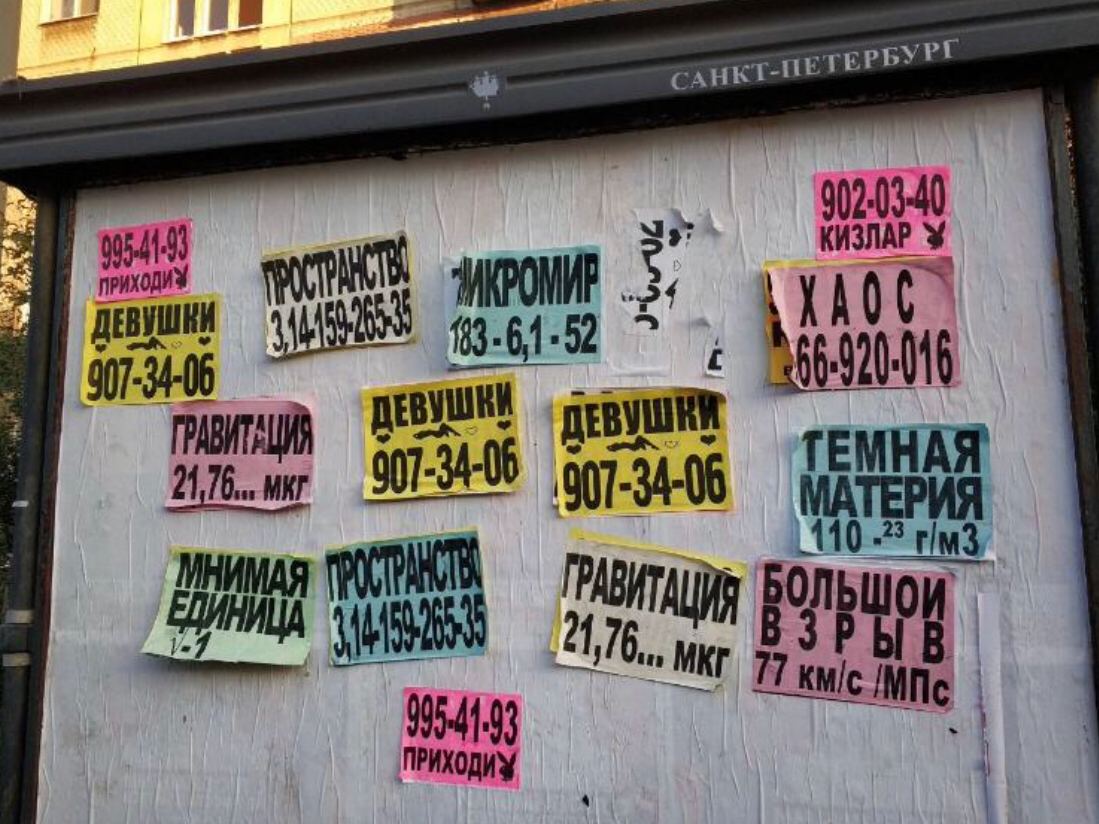 САНКТ-ПЕТЕРБУРГ
902-03-40
КИЗЛАР
995-41-93
ПРИХОДИ
ПРОСТРАНСТВО
3,14-159-265-35
МИКРОМИР
183-6,1-52
ХАОС
66-920-016
ДЕВУШКИ
907-34-06
ГРАВИТАЦИЯ
21,76... мкг
ДЕВУШКИ
907-34-06
ДЕВУШКИ
907-34-06
ТЕМНАЯ
МАТЕРИЯ
110 -23 г/м3
МНИМАЯ
ЕДИНИЦА
√-1
ПРОСТРАНСТВО
3,14-159-265-35
ГРАВИТАЦИЯ
21,76... мкг
БОЛЬШОЙ
ВЗРЫВ
77 км/с /МПс
995-41-93
ПРИХОДИ